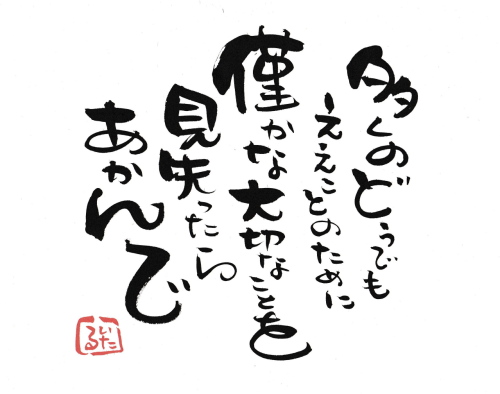 多くのどうでも
ええことのために
僅かな大切なことを
見失ったら
あかんで